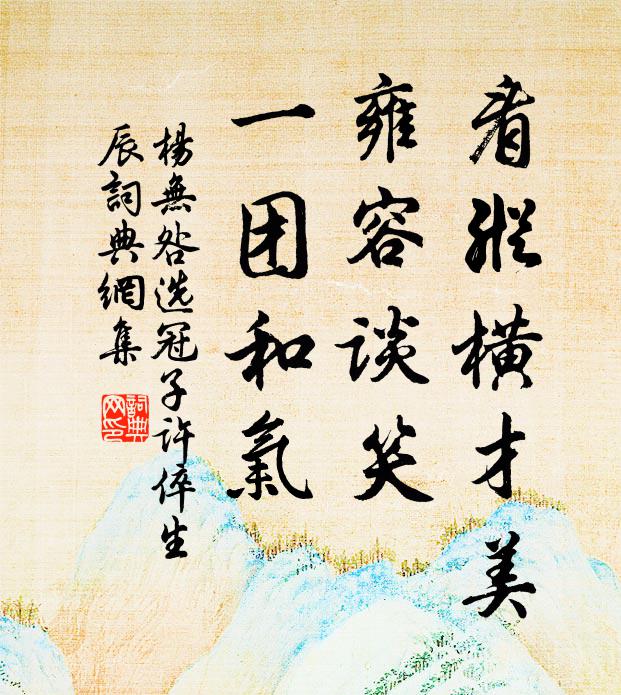 看縱橫才美
雍容談笑
一团和氣
楊無咎选冠子許倅生
辰詞典網集
詞典网印